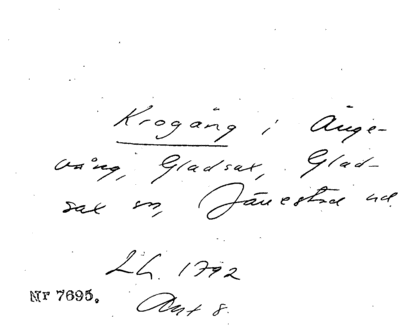 Krogäng i Änge-
vång, Gladsax, Glad-
sax sn, Järrestad hd.
LL. 1792
Akt 8.
Nr 7695.